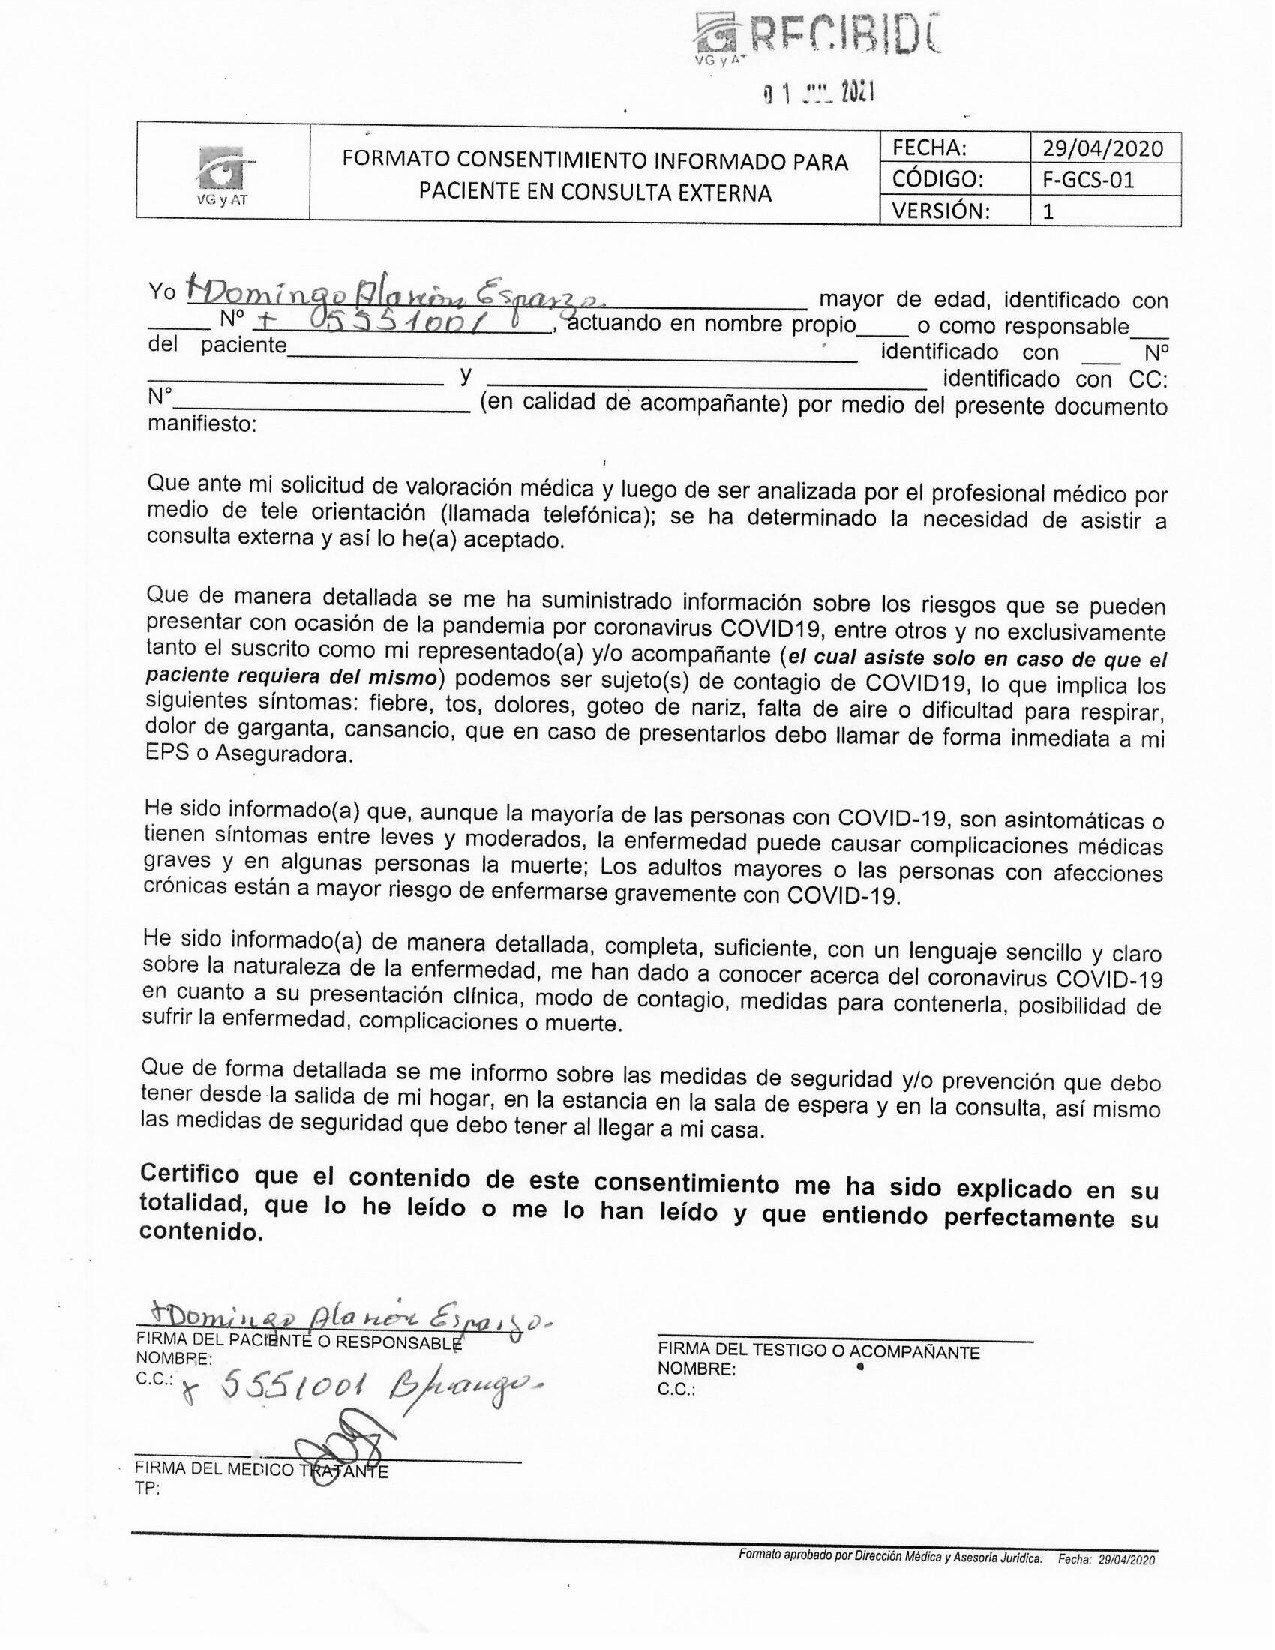 RECIBIDO
VG y AT
01 2021
VG y AT
FORMATO CONSENTIMIENTO INFORMADO PARA
PACIENTE EN CONSULTA EXTERNA
FECHA: 29/04/2020
CÓDIGO: F-GCS-01
VERSIÓN: 1
Yo Domingo Alarcón Esparza mayor de edad, identificado con
____ Nº 05551001, actuando en nombre propio____ o como responsable___
del paciente____ identificado con ___ Nº
____ y ____ identificado con CC:
N°____ (en calidad de acompañante) por medio del presente documento
manifiesto:
Que ante mi solicitud de valoración médica y luego de ser analizada por el profesional médico por
medio de tele orientación (llamada telefónica); se ha determinado la necesidad de asistir a
consulta externa y así lo he(a) aceptado.
Que de manera detallada se me ha suministrado información sobre los riesgos que se pueden
presentar con ocasión de la pandemia por coronavirus COVID19, entre otros y no exclusivamente
tanto el suscrito como mi representado(a) y/o acompañante (el cual asiste solo en caso de que el
paciente requiera del mismo) podemos ser sujeto(s) de contagio de COVID19, lo que implica los
siguientes síntomas: fiebre, tos, dolores, goteo de nariz, falta de aire o dificultad para respirar,
dolor de garganta, cansancio, que en caso de presentarlos debo llamar de forma inmediata a mi
EPS o Aseguradora.
He sido informado(a) que, aunque la mayoría de las personas con COVID-19, son asintomáticas o
tienen síntomas entre leves y moderados, la enfermedad puede causar complicaciones médicas
graves y en algunas personas la muerte; Los adultos mayores o las personas con afecciones
crónicas están a mayor riesgo de enfermarse gravemente con COVID-19.
He sido informado(a) de manera detallada, completa, suficiente, con un lenguaje sencillo y claro
sobre la naturaleza de la enfermedad, me han dado a conocer acerca del coronavirus COVID-19
en cuanto a su presentación clínica, modo de contagio, medidas para contenerla, posibilidad de
sufrir la enfermedad, complicaciones o muerte.
Que de forma detallada se me informo sobre las medidas de seguridad y/o prevención que debo
tener desde la salida de mi hogar, en la estancia en la sala de espera y en la consulta, así mismo
las medidas de seguridad que debo tener al llegar a mi casa.
Certifico que el contenido de este consentimiento me ha sido explicado en su
totalidad, que lo he leído o me lo han leído y que entiendo perfectamente su
contenido.
Domingo Alarcón Esparza
FIRMA DEL PACIENTE O RESPONSABLE
NOMBRE:
C.C.: 5551001 B/manga
FIRMA DEL TESTIGO O ACOMPAÑANTE
NOMBRE:
C.C.:
FIRMA DEL MEDICO TRATANTE
TP:
Formato aprobado por Dirección Médica y Asesoría Jurídica. Fecha: 29/04/2020